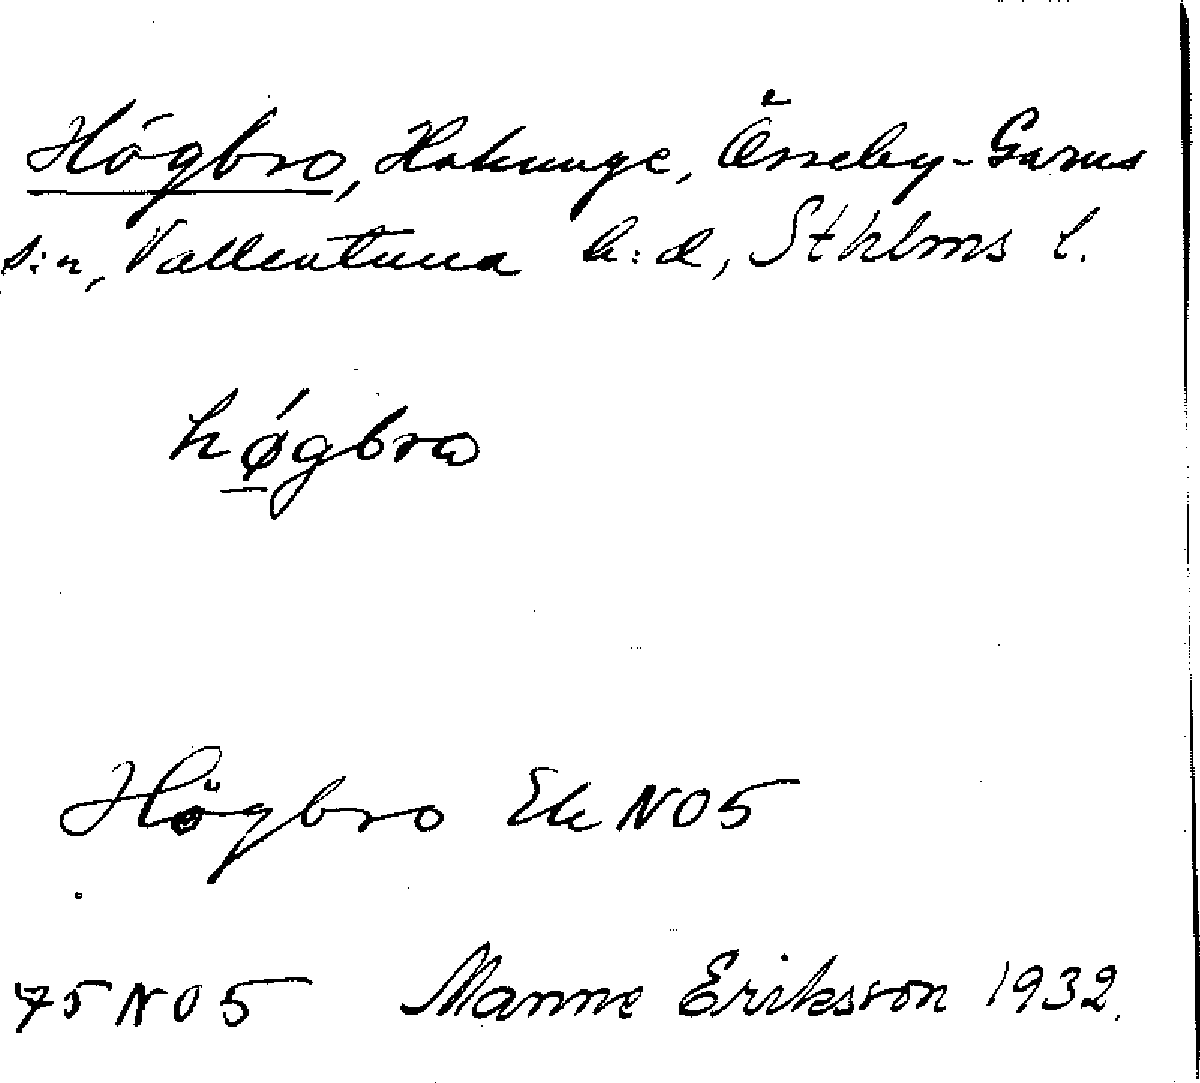 Högbro, Hakunge, Össeby-Garns
s:n, Vallentuna h:d, Sthlms l.
hǿgbro
Högbro Ek NO5
75 NO5 Manne Eriksson 1932.